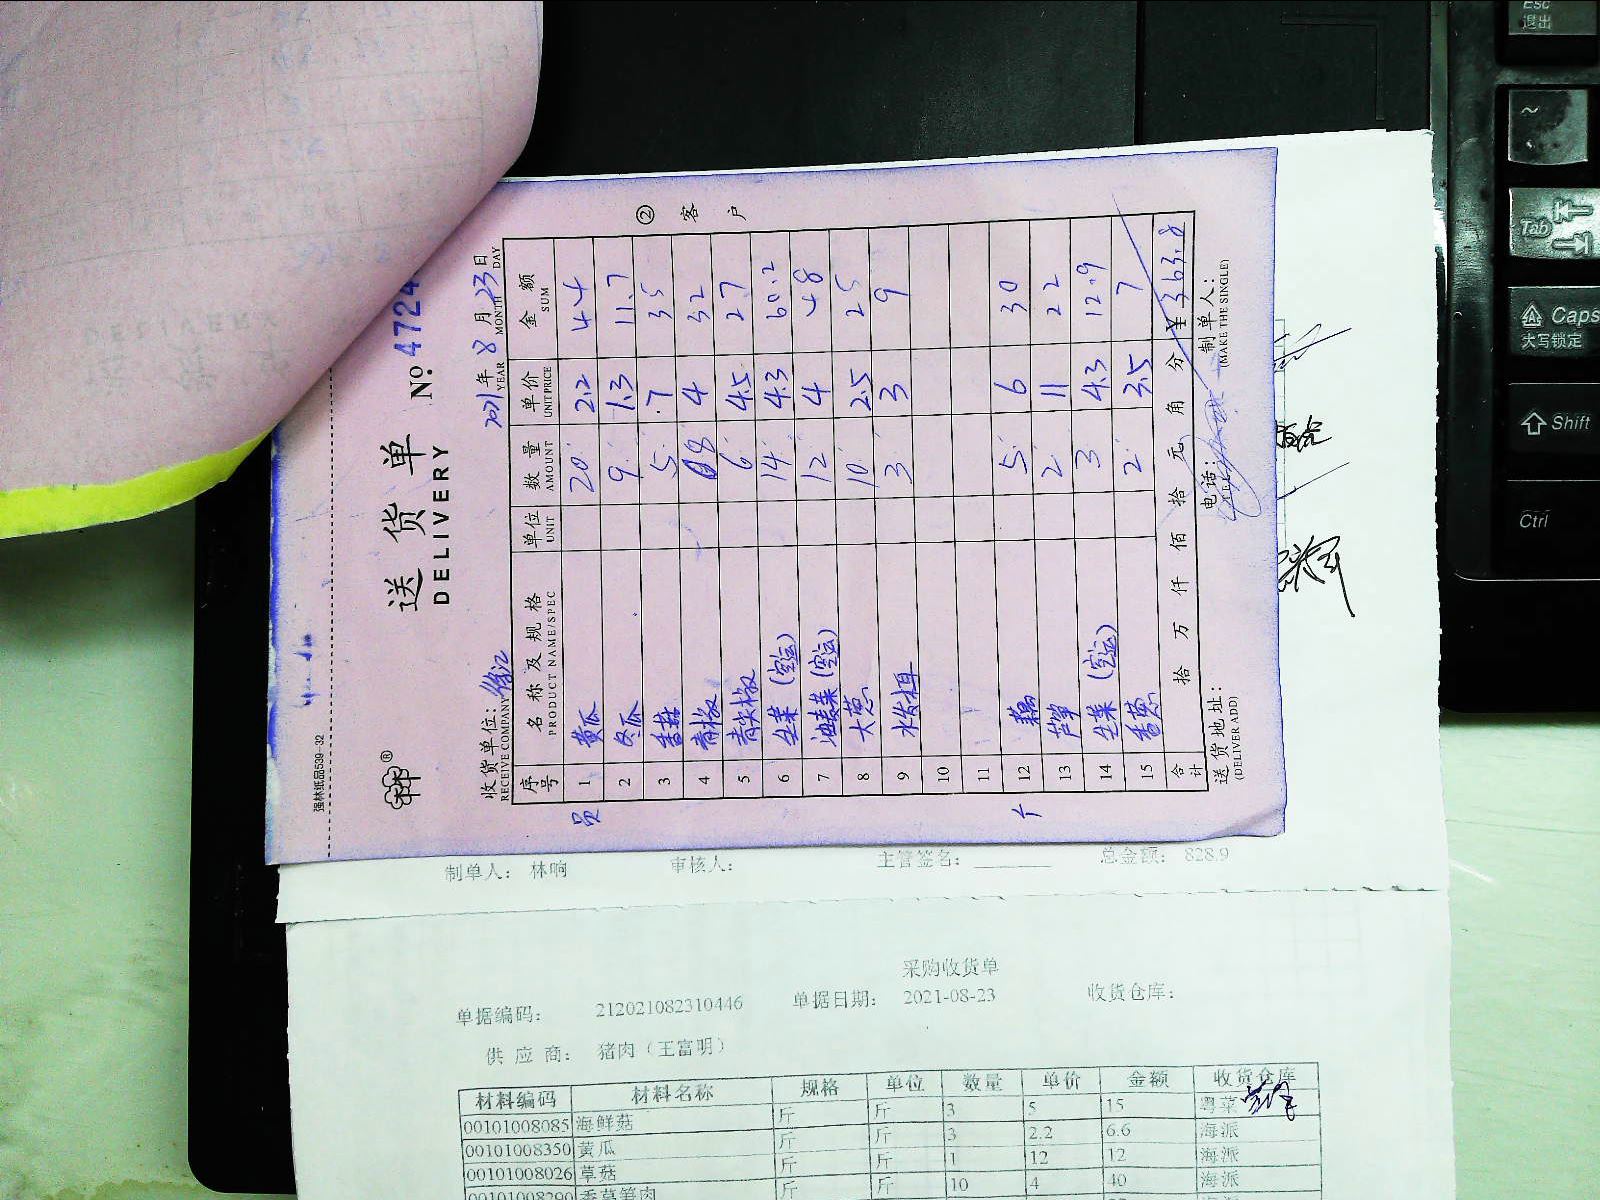 强林纸品539-32
送货单
DELIVERY
No. 4724
收货单位：
RECEIVE COMPANY
2021年 8月 23日
YEAR MONTH DAY
② 客户
序号 名称及规格 单位 数量 单价 金额
PRODUCT NAME/SPEC UNIT AMOUNT UNIT PRICE SUM
员
1 黄瓜 20 2.2 44
2 冬瓜 9 1.3 11.7
3 香菇 5 7 35
4 青椒 8 4 32
5 青尖椒 6 4.5 27
6 生菜（空运） 14 4.3 60.2
7 油麦菜（空运） 12 4 48
8 大葱 10 2.5 25
9 水发木耳 3 3 9
10
11
12 藕 5 6 30
13 芦笋 2 11 22
14 生菜（空运） 3 4.3 12.9
15 香葱 2 3.5 7
合计 拾 万 仟 佰 拾 元 角 分 ¥ 363.8
送货地址： 电话： 制单人：
(DELIVER ADD) (TEL) (MAKE THE SINGLE)
制单人： 林响 审核人： 主管签名： 总金额： 828.9
采购收货单
单据编码： 212021082310446 单据日期： 2021-08-23 收货仓库：
供应商： 猪肉（王富明）
材料编码 材料名称 规格 单位 数量 单价 金额 收货仓库
00101008085 海鲜菇 斤 斤 3 5 15 粤菜
00101008350 黄瓜 斤 斤 3 2.2 6.6 海派
00101008026 草菇 斤 斤 1 12 12 海派
00101008290 香莴笋肉 斤 斤 10 4 40 海派
Esc
退出
~
Tab
Caps
大写锁定
Shift
Ctrl